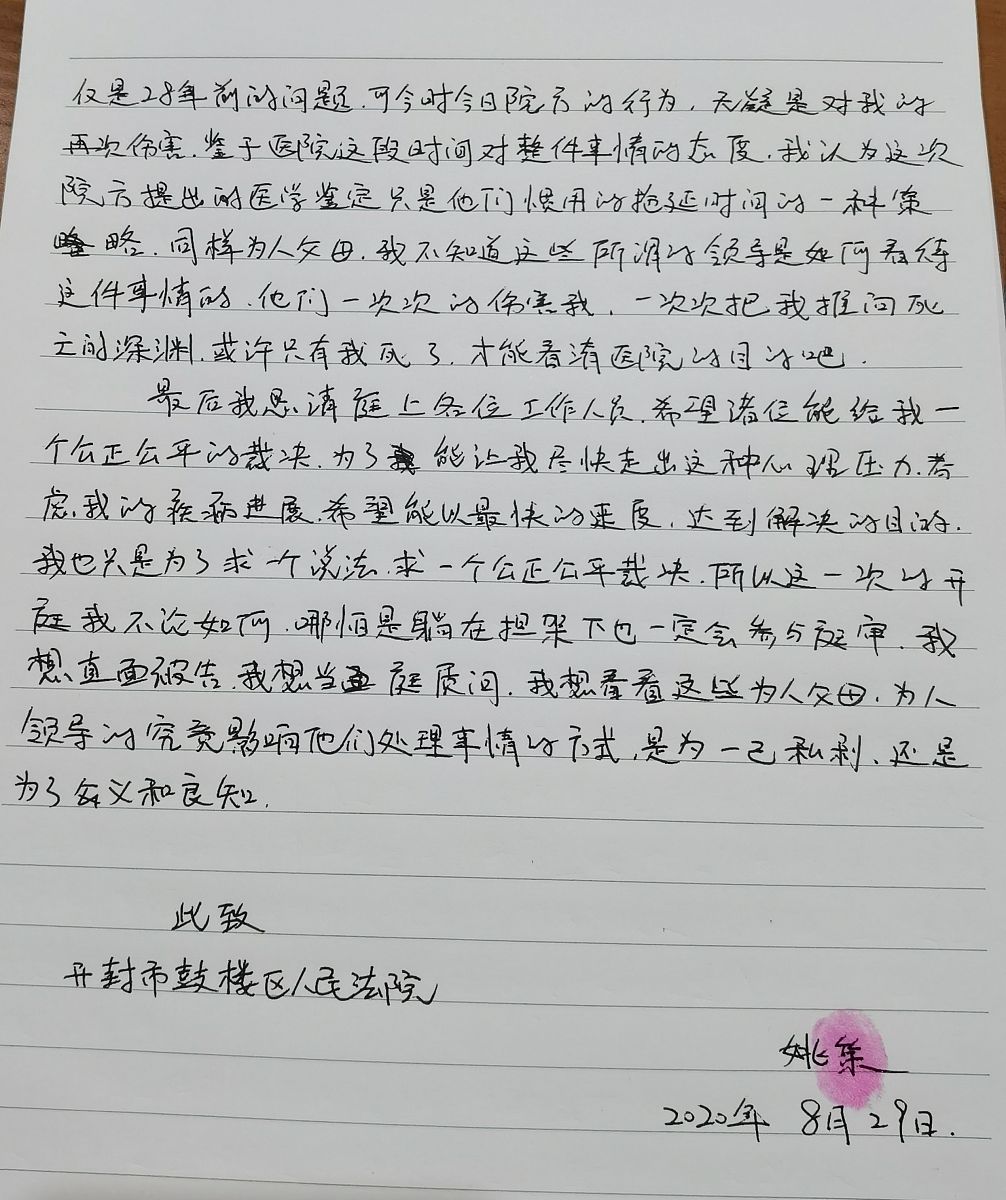 仅是28年前的问题.可今时今日院方的行为,无疑是对我的
再次伤害.鉴于医院这段时间对整件事情的态度.我认为这次
院方提出的医学鉴定只是他们惯用的拖延时间的一种策
略.同样为人父母.我不知道这些所谓的领导是如何看待
这件事情的.他们一次次的伤害我.一次次把我推向死
亡的深渊.或许只有我死了.才能看清医院的目的吧.
最后我恳请庭上各位工作人员.希望诸位能给我一
个公正公平的裁决.为了能让我尽快走出这种心理压力.考
虑我的疾病进展.希望能以最快的速度.达到解决的目的.
我也只是为了求一个说法.求一个公正公平裁决.所以这一次的开
庭我不论如何.哪怕是躺在担架下也一定会参与庭审.我
想直面被告.我想当庭质问.我想看看这些为人父母.为人
领导的究竟影响他们处理事情的方式.是为一己私利.还是
为了名义和良知.
此致
开封市鼓楼区人民法院
姚策
2020年 8月29日.